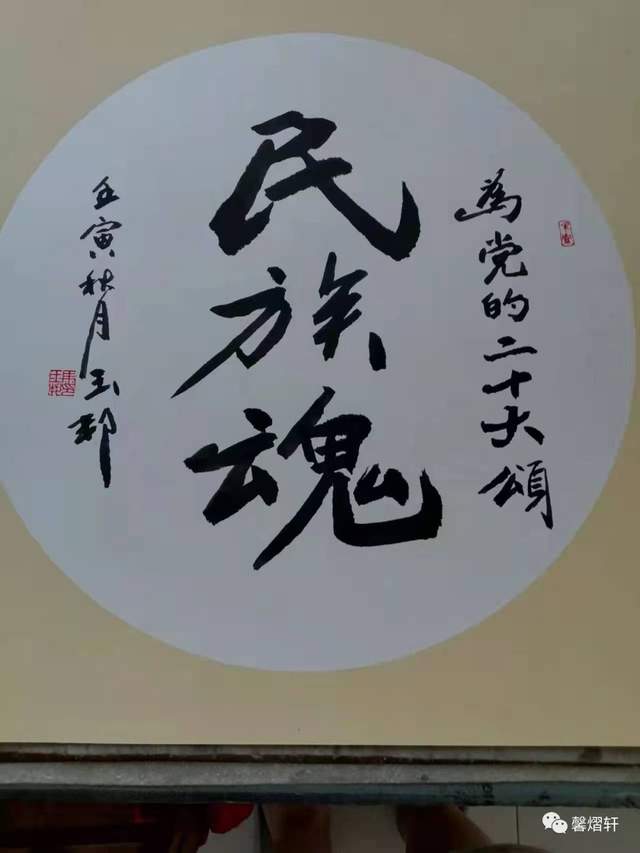 為党的二十大頌
民族魂
壬寅秋月玉邦
馨熠轩